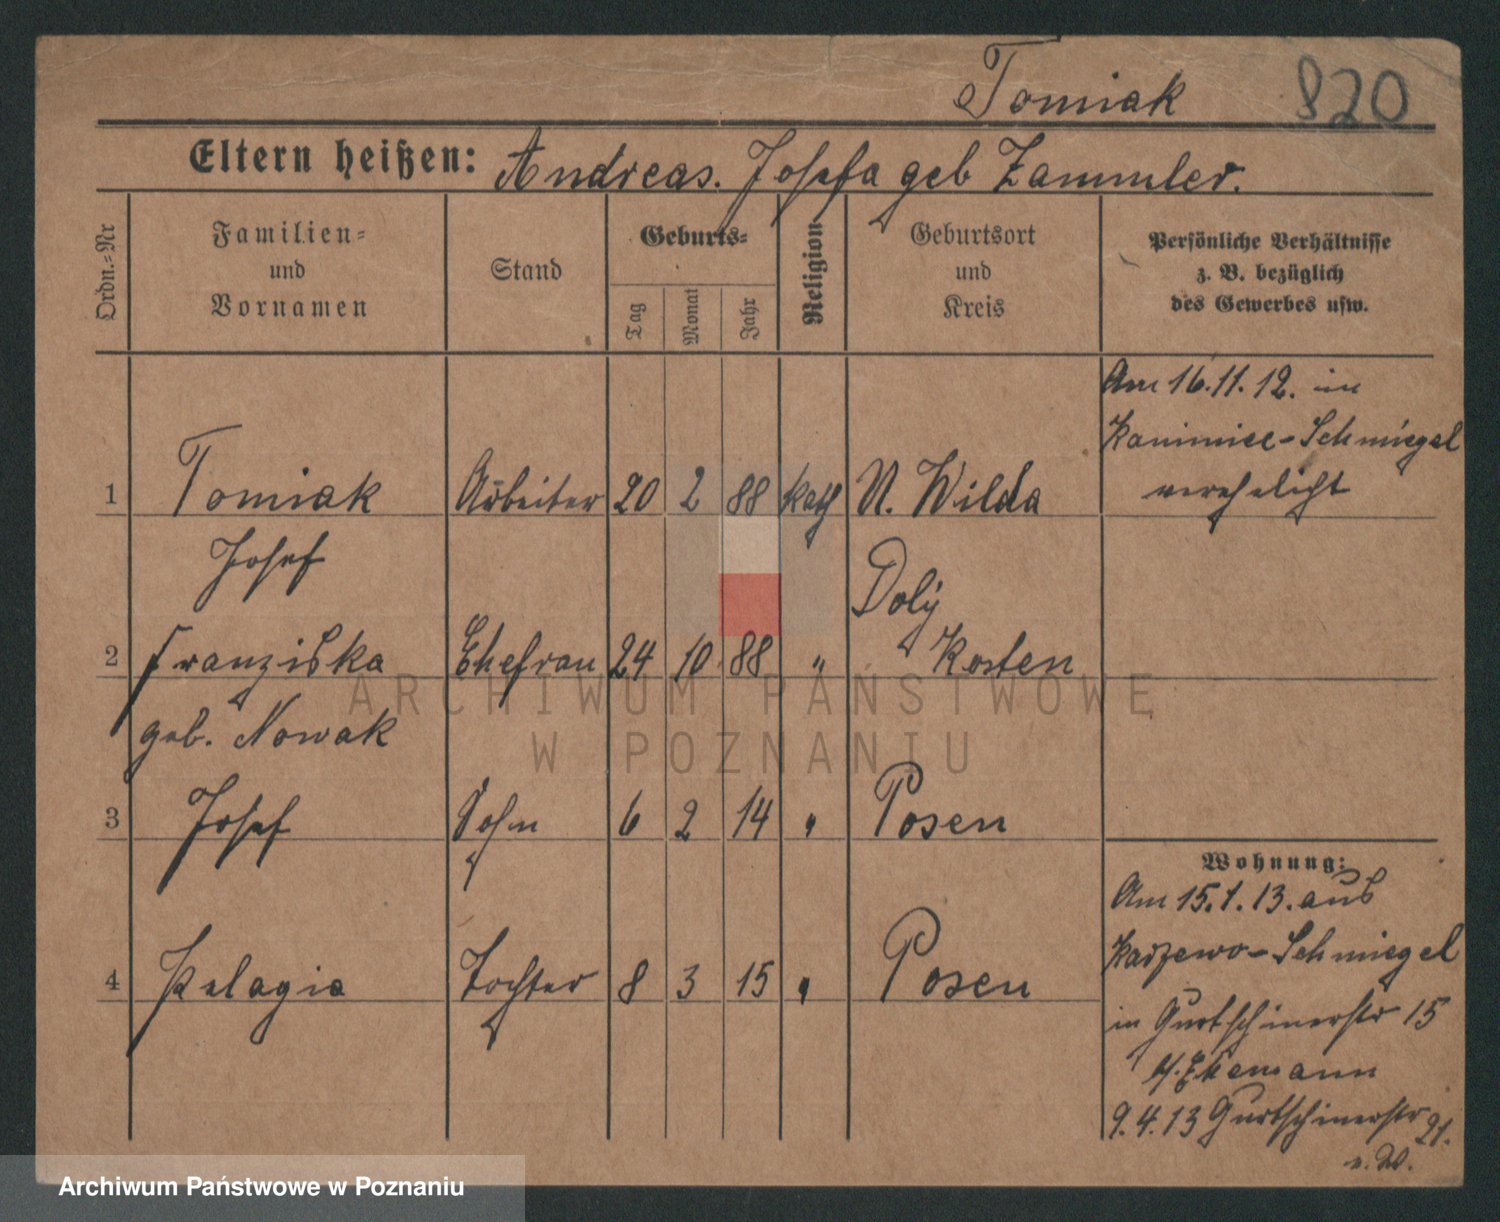 Tomiak 820
Eltern heißen: Andreas. Josefa geb Zammler.
Ordn.=Nr
Familien=
und
Vornamen
Stand
Geburts=
Tag
Monat
Jahr
Religion
Geburtsort
und
Kreis
Persönliche Verhältnisse
z. B. bezüglich
des Gewerbes usw.
Am 16.11.12. in
Schmiegel
verehelicht
1 Tomiak Arbeiter 20 2 88 kath U. Wilda
Josef
2 Franziska Ehefrau 24 10 88 " Kosten
geb. Nowak
3 Josef Sohn 6 2 14 " Posen
4 Pelagia Tochter 8 3 15 " Posen
Wohnung:
Am 15.1.13. aus
Karzewo-Schmiegel
in Gurtschinerstr 15
9.4.13 Gurtschinerstr 21.
ARCHIWUM PAŃSTWOWE
W POZNANIU
Archiwum Państwowe w Poznaniu